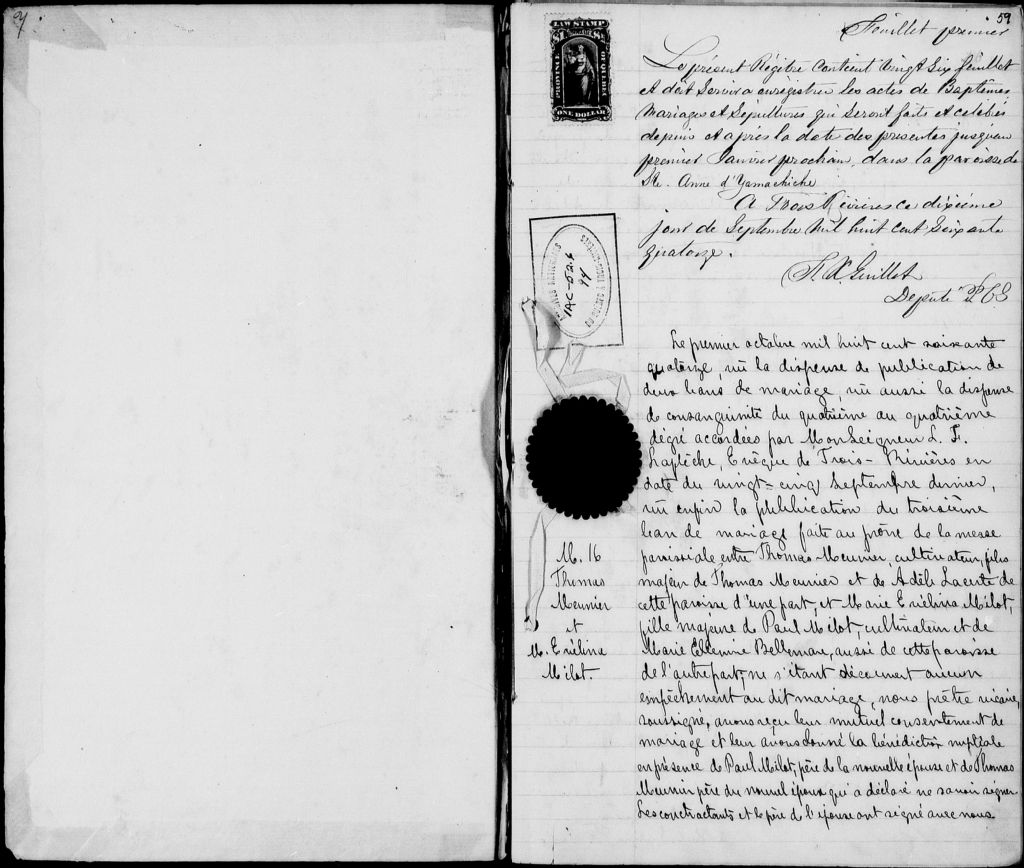 59
Feuillet premier
LAW STAMP
$1 $1
PROVINCE OF QUEBEC
ONE DOLLAR
Le présent Régitre Contient Vingt Six feuillet
et doit Servir a enrégistrer les actes de Baptêmes
Mariages et Sépultures qui Seront faits et célébrés
depuis et après la date des presentes jusqu'au
premier Janvier prochain, dans la paroisse de
Ste. Anne d'Yamachiche
A Trois Rivieres ce dixième
jour de Septembre Mil huit cent Soixante
quatorze.
F. X. Guillet
Deputé P C S
IAC-026
44
Le premier octobre mil huit cent soixante
quatorze, vû la dispense de publication de
deux bans de mariage, vû aussi la dispense
de consanguinité du quatrième au quatrième
dégré accordées par Monseigneur L. F.
Laflèche, Evèque de Trois-Rivières en
date du vingt-cinq Septembre dernier,
vû enfin la publication du troisième
ban de mariage faite au prône de la messe
paroissiale entre Thomas Meunier, cultivateur, fils
majeur de Thomas Meunier et de Adèle Lacerte de
cette paroisse d'une part, et Marie Enélina Milot,
fille majeure de Paul Milot, cultivateur et de
Marie Bellemare, aussi de cette paroisse
de l'autre part, ne s'étant découvert aucun
empêchement au dit mariage, nous prêtre vicaire,
soussigné, avons reçu leur mutuel consentement de
mariage et leur avons donné la bénédiction nuptiale
en présence de Paul Milot, père de la nouvelle épouse et de Thomas
Meunier père du nouvel époux qui a déclaré ne savoir signer
Les contractants et le père de l'épouse ont signé avec nous.
M. 16
Thomas
Meunier
et
M. Enélina
Milot.